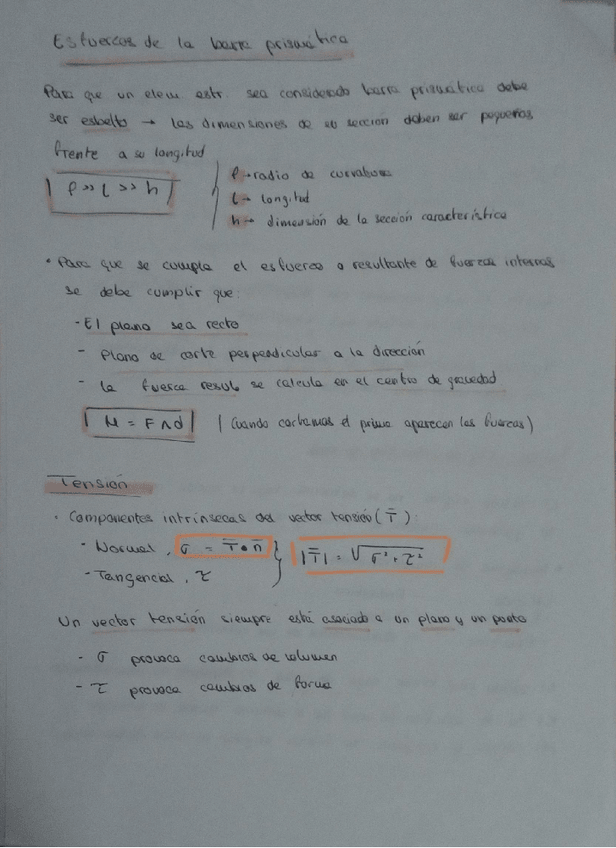 Esfuerzos de la barra prismática
Para que un elem. estr. sea considerado barra prismática debe
ser esbelto → las dimensiones de su sección deben ser pequeñas
frente a su longitud
ρ >> L >> h
ρ → radio de curvatura
L → longitud
h → dimensión de la sección característica
• Para que se cumpla el esfuerzo o resultante de fuerzas internas
se debe cumplir que:
- El plano sea recto
- Plano de corte perpendicular a la dirección
- La fuerza result. se calcula en el centro de gravedad
M = F ∧ d
(Cuando cortamos el prisma aparecen las fuerzas)
Tensión
• Componentes intrínsecas del vector tensión (T̄):
- Normal, σ = T̄ • n̄
- Tangencial, τ
|T̄| = √σ² + τ²
Un vector tensión siempre está asociado a un plano y un punto
- σ provoca cambios de volumen
- τ provoca cambios de forma